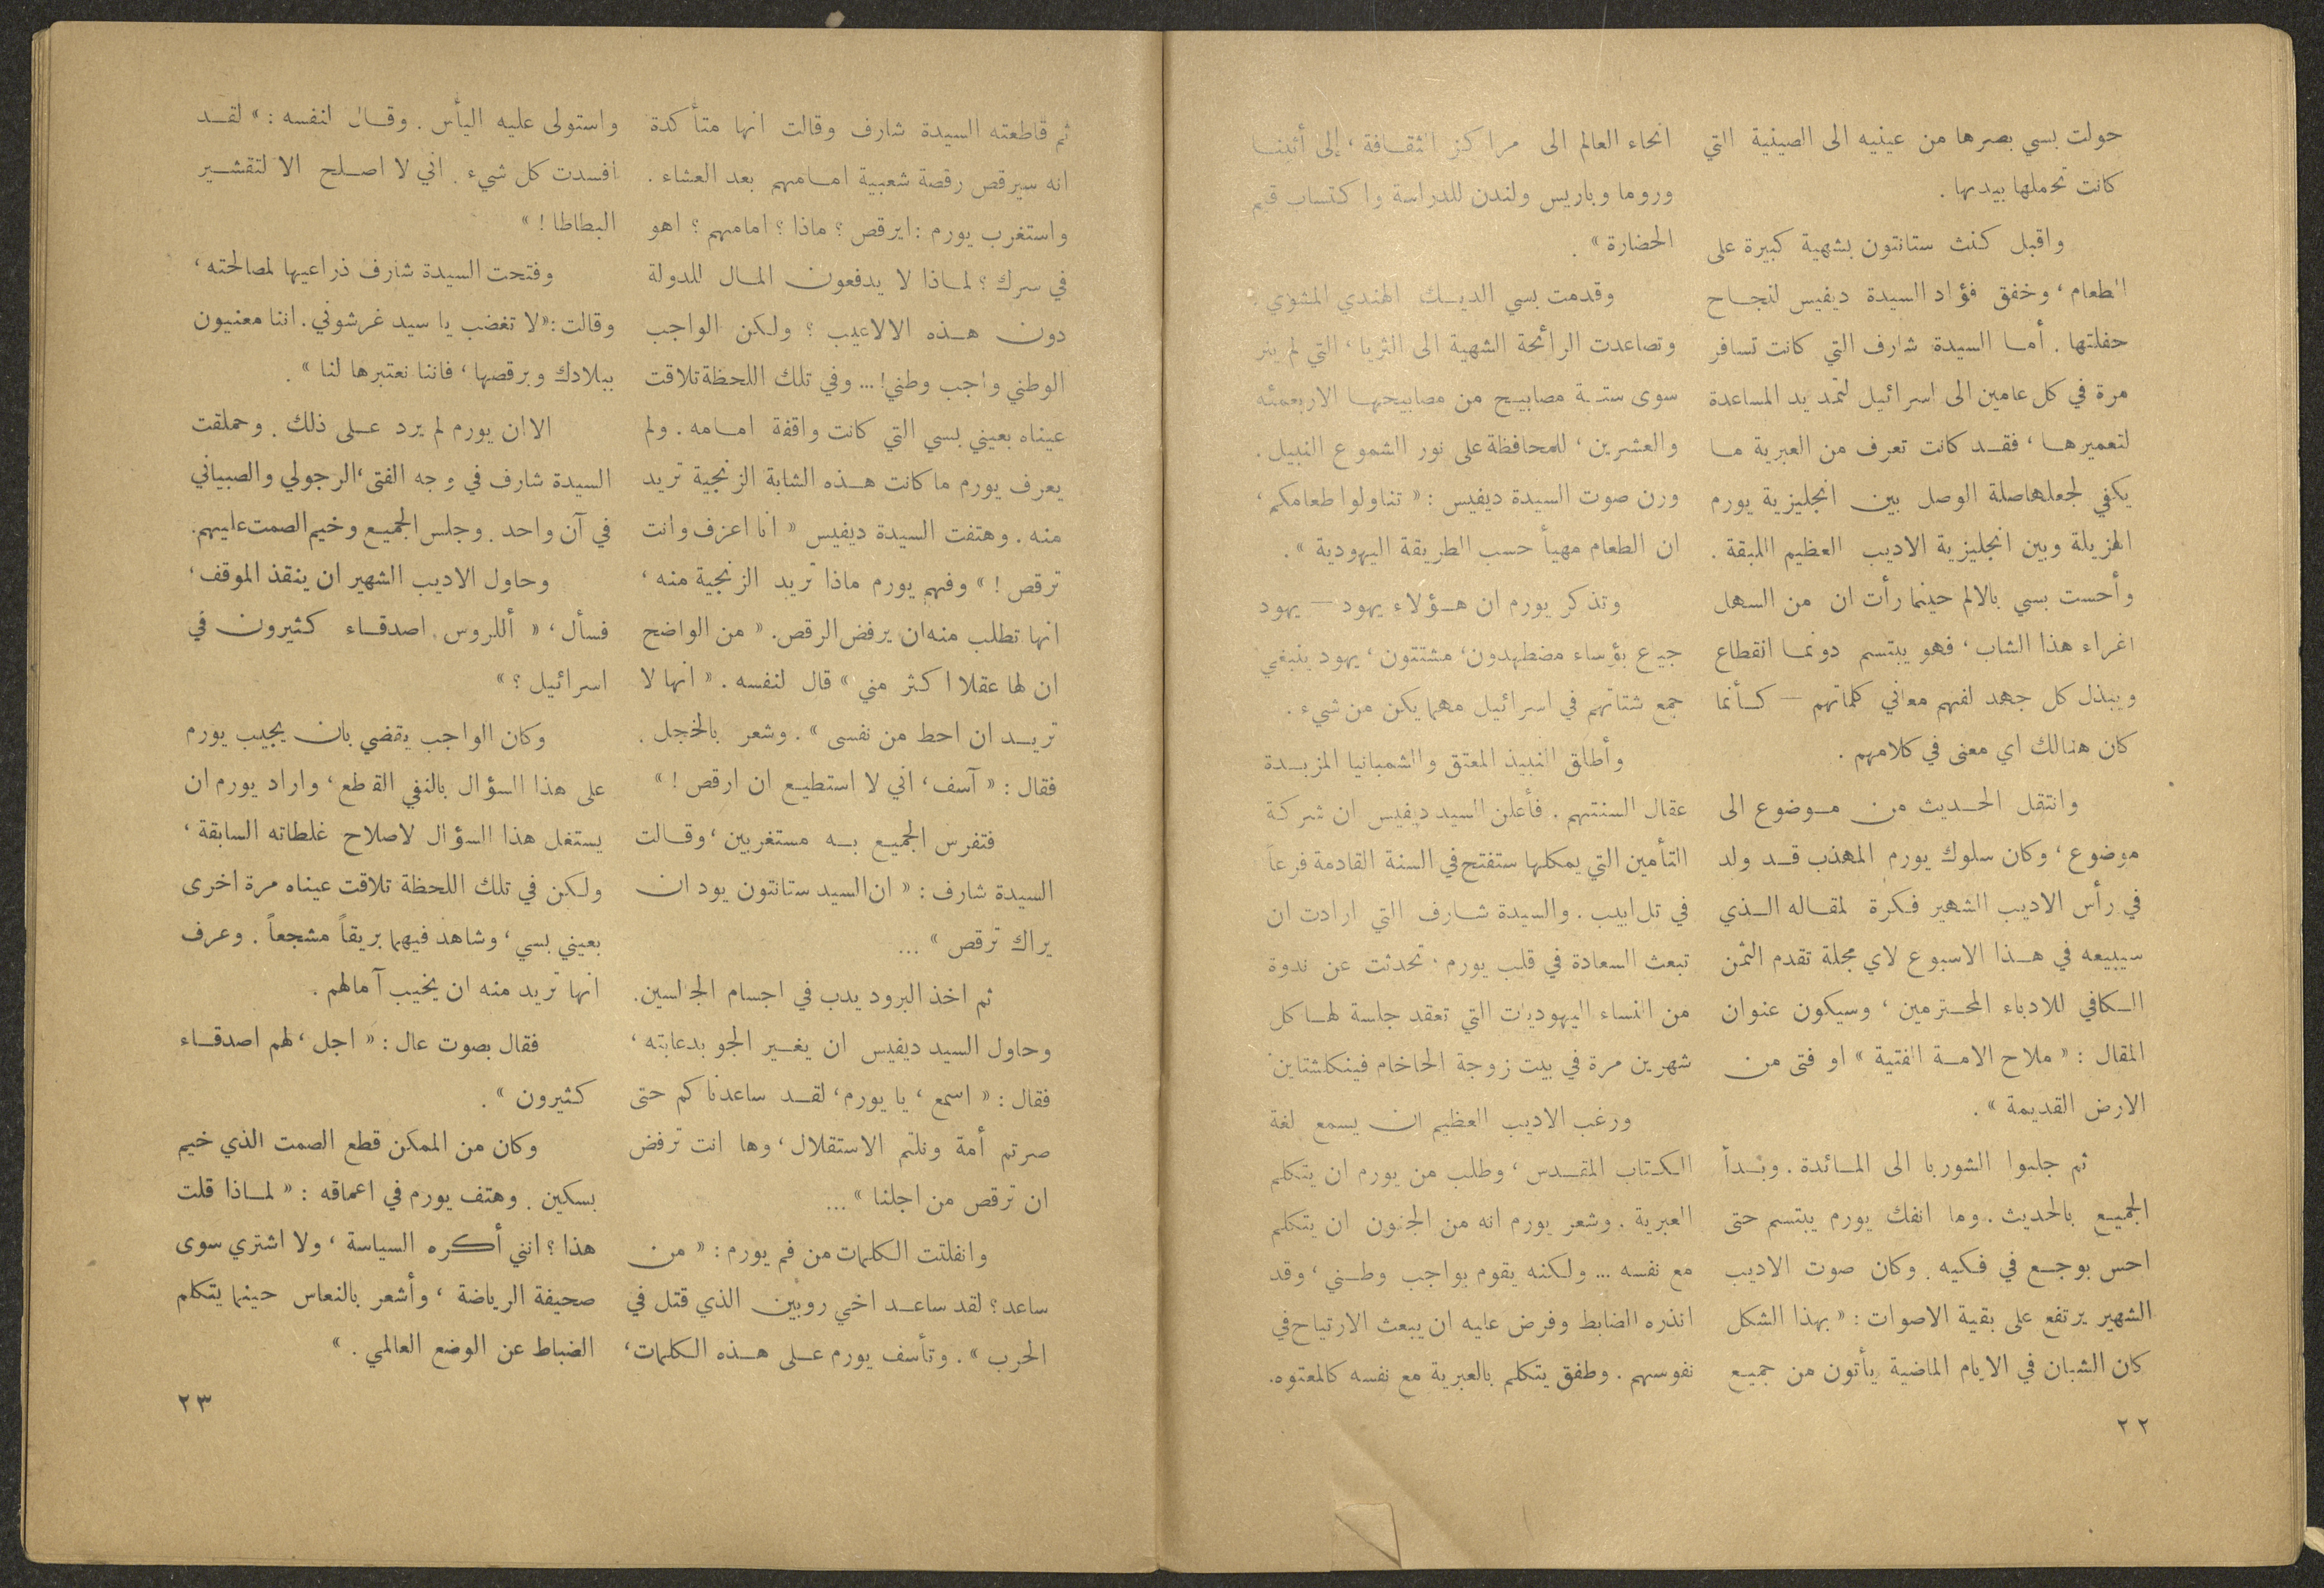 حولت بسي بصرها من عينيه الى الصينية التي
كانت تحملها بيديها .
واقبل كنث ستانتون بشهية كبيرة على
الطعام ، وخفق فؤاد السيدة ديفيس لنجاح
حفلتها . أما السيدة شارف التي كانت تسافر
مرة في كل عامين الى اسرائيل لتمد يد المساعدة
لتعميرها ، فقد كانت تعرف من العبرية ما
يكفي لجعلها صلة الوصل بين انجليزية يورم
الهزيلة وبين انجليزية الاديب العظيم اللبقة .
وأحست بسي بالالم حينما رأت ان من السهل
اغراء هذا الشاب ، فهو يبتسم دونما انقطاع
ويبذل كل جهد لفهم معاني كلماتهم — كأنما
كان هنالك اي معنى في كلامهم .
وانتقل الحديث من موضوع الى
موضوع ، وكان سلوك يورم المهذب قد ولد
في رأس الاديب الشهير فكرة لمقاله الذي
سيبيعه في هذا الاسبوع لاي مجلة تقدم الثمن
الكافي للادباء المحترمين ، وسيكون عنوان
المقال : « ملاح الامة الفتية » او فتى من
الارض القديمة » .
ثم جلبوا الشوربا الى المائدة . وبدأ
الجميع بالحديث . وما انفك يورم يبتسم حتى
احس بوجع في فكيه . وكان صوت الاديب
الشهير يرتفع على بقية الاصوات : « بهذا الشكل
كان الشبان في الايام الماضية يأتون من جميع
انحاء العالم الى مراكز الثقافة ، إلى أثنا
وروما وباريس ولندن للدراسة واكتساب قيم
الحضارة » .
وقدمت بسي الديك الهندي المشوي .
وتصاعدت الرائحة الشهية الى الثريا ، التي لم ينر
سوى ستة مصابيح من مصابيحها الاربعمئه
والعشرين ، للمحافظة على نور الشموع النبيل .
ورن صوت السيدة ديفيس : « تناولوا طعامكم ،
ان الطعام مهيأ حسب الطريقة اليهودية » .
وتذكر يورم ان هؤلاء يهود — يهود
جيع بؤساء مضطهدون ، مشتتون ، يهود ينبغي
جمع شتاتهم في اسرائيل مهما يكن من شيء .
وأطلق النبيذ المعتق والشمبانيا المزبدة
عقال السنتهم . فأعلن السيد ديفيس ان شركة
التأمين التي يمكلها ستفتح في السنة القادمة فرعاً
في تل ابيب . والسيدة شارف التي ارادت ان
تبعث السعادة في قلب يورم ، تحدثت عن ندوة
من النساء اليهوديات التي تعقد جلسة لها كل
شهرين مرة في بيت زوجة الحاخام فينكلشتاين
ورغب الاديب العظيم ان يسمع لغة
الكتاب المقدس ، وطلب من يورم ان يتكلم
العبرية . وشعر يورم انه من الجنون ان يتكلم
مع نفسه ... ولكنه يقوم بواجب وطني ، وقد
انذره الضابط وفرض عليه ان يبعث الارتياح في
نفوسهم . وطفق يتكلم بالعبرية مع نفسه كالمعتوه .
٢٢
ثم قاطعته السيدة شارف وقالت انها متأكدة
انه سيرقص رقصة شعبية امامهم بعد العشاء .
واستغرب يورم : ايرقص ؟ ماذا ؟ امامهم ؟ اهو
في سرك ؟ لماذا لا يدفعون المال للدولة
دون هذه الالاعيب ؟ ولكن الواجب
الوطني واجب وطني ! ... وفي تلك اللحظة تلاقت
عيناه بعيني بسي التي كانت واقفة امامه . ولم
يعرف يورم ما كانت هذه الشابة الزنجية تريد
منه . وهتفت السيدة ديفيس « انا اعزف وانت
ترقص ! » وفهم يورم ماذا تريد الزنجية منه ،
انها تطلب منه ان يرفض الرقص . « من الواضح
ان لها عقلا اكثر مني » قال لنفسه . « انها لا
تريد ان احط من نفسى » . وشعر بالخجل .
فقال : « آسف ، اني لا استطيع ان ارقص ! »
فتفرس الجميع به مستغربين ، وقالت
السيدة شارف : « ان السيد ستانتون يود ان
يراك ترقص » ...
ثم اخذ البرود يدب في اجسام الجالسين .
وحاول السيد ديفيس ان يغير الجو بدعابته ،
فقال : « اسمع ، يا يورم ، لقد ساعدناكم حتى
صرتم أمة ونلتم الاستقلال ، وها انت ترفض
ان ترقص من اجلنا » ...
وانفلتت الكلمات من فم يورم : « من
ساعد ؟ لقد ساعد اخي روبين الذي قتل في
الحرب » . وتأسف يورم على هذه الكلمات ،
واستولى عليه اليأس . وقال لنفسه : « لقد
افسدت كل شيء . اني لا اصلح الا لتقشير
البطاطا ! »
وفتحت السيدة شارف ذراعيها لمصالحته ،
وقالت : « لا تغضب يا سيد غرشوني . اننا معنيون
ببلادك وبرقصها ، فاننا نعتبرها لنا » .
الا ان يورم لم يرد على ذلك . وحملقت
السيدة شارف في وجه الفتى ، الرجولي والصبياني
في آن واحد . وجلس الجميع وخيم الصمت عليهم .
وحاول الاديب الشهير ان ينقذ الموقف ،
فسأل ، « أللروس اصدقاء كثيرون في
اسرائيل ؟ »
وكان الواجب يقضي بان يجيب يورم
على هذا السؤال بالنفي القاطع ، واراد يورم ان
يستغل هذا السؤال لاصلاح غلطاته السابقة ،
ولكن في تلك اللحظة تلاقت عيناه مرة اخرى
بعيني بسي ، وشاهد فيهما بريقاً مشجعاً . وعرف
انها تريد منه ان يخيب آمالهم .
فقال بصوت عال : « اجل ، لهم اصدقاء
كثيرون » .
وكان من الممكن قطع الصمت الذي خيم
بسكين . وهتف يورم في اعماقه : « لماذا قلت
هذا ؟ انني أكره السياسة ، ولا اشتري سوى
صحيفة الرياضة ، وأشعر بالنعاس حينما يتكلم
الضباط عن الوضع العالمي . »
٢٣